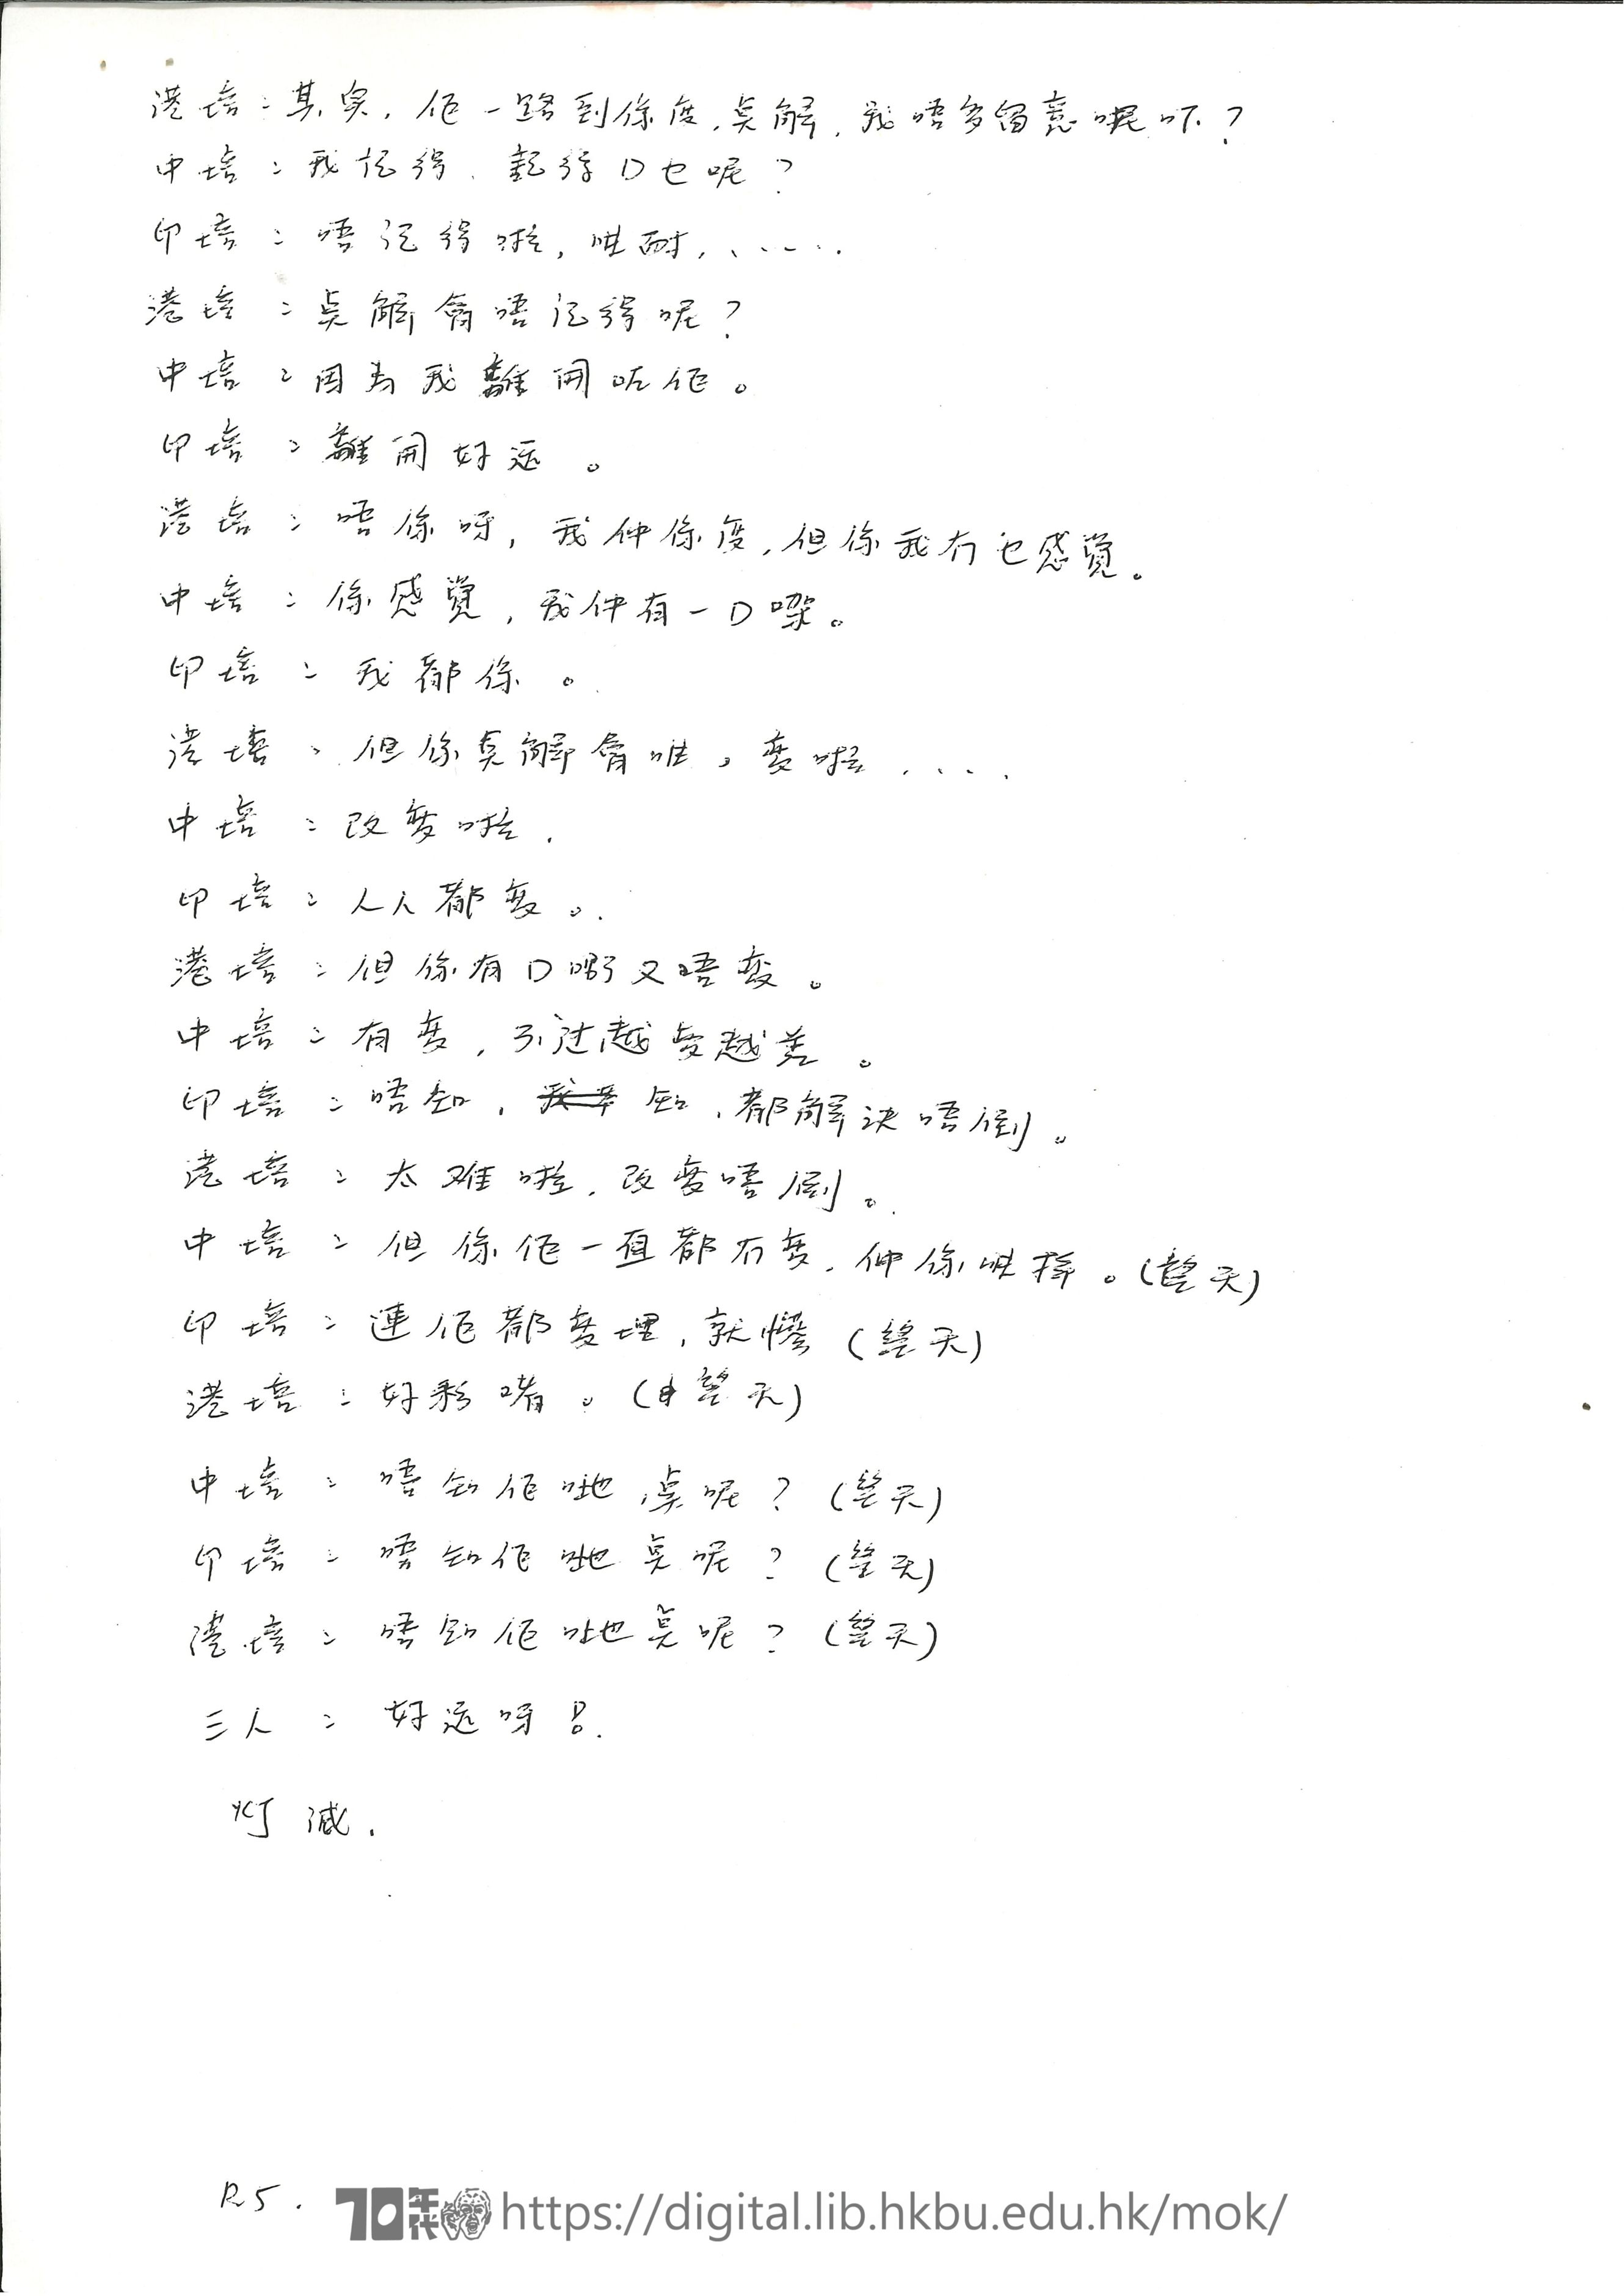 港培：其実，佢一路到係度，点解，我唔多留意呢吓？
中培：我記得，記得D乜呢？
印培：唔記得啦，咁耐，......
港培：点解會唔記得呢？
中培：因為我離開咗佢。
印培：離開好远。
港培：唔係呀，我仲係度，但係我冇乜感覚。
中培：係感覚，我仲有一D㗎。
印培：我都係。
港培：但係点解會咁，变啦....
中培：改变啦．
印培：人人都变。
港培：但係有D嘢又唔变。
中培：有变，不过越变越差。
印培：唔知，知，都解决唔倒。
港培：太难啦，改变唔倒。
中培：但係佢一直都冇变，仲係咁樣。（望天）
印培：連佢都变埋，就慘（望天）
港培：好彩啫。（望天）
中培：唔知佢哋点呢？（望天）
印培：唔知佢哋点呢？（望天）
港培：唔知佢哋点呢？（望天）
三人：好远呀！
灯滅．
R5.
70年代 https://digital.lib.hkbu.edu.hk/mok/